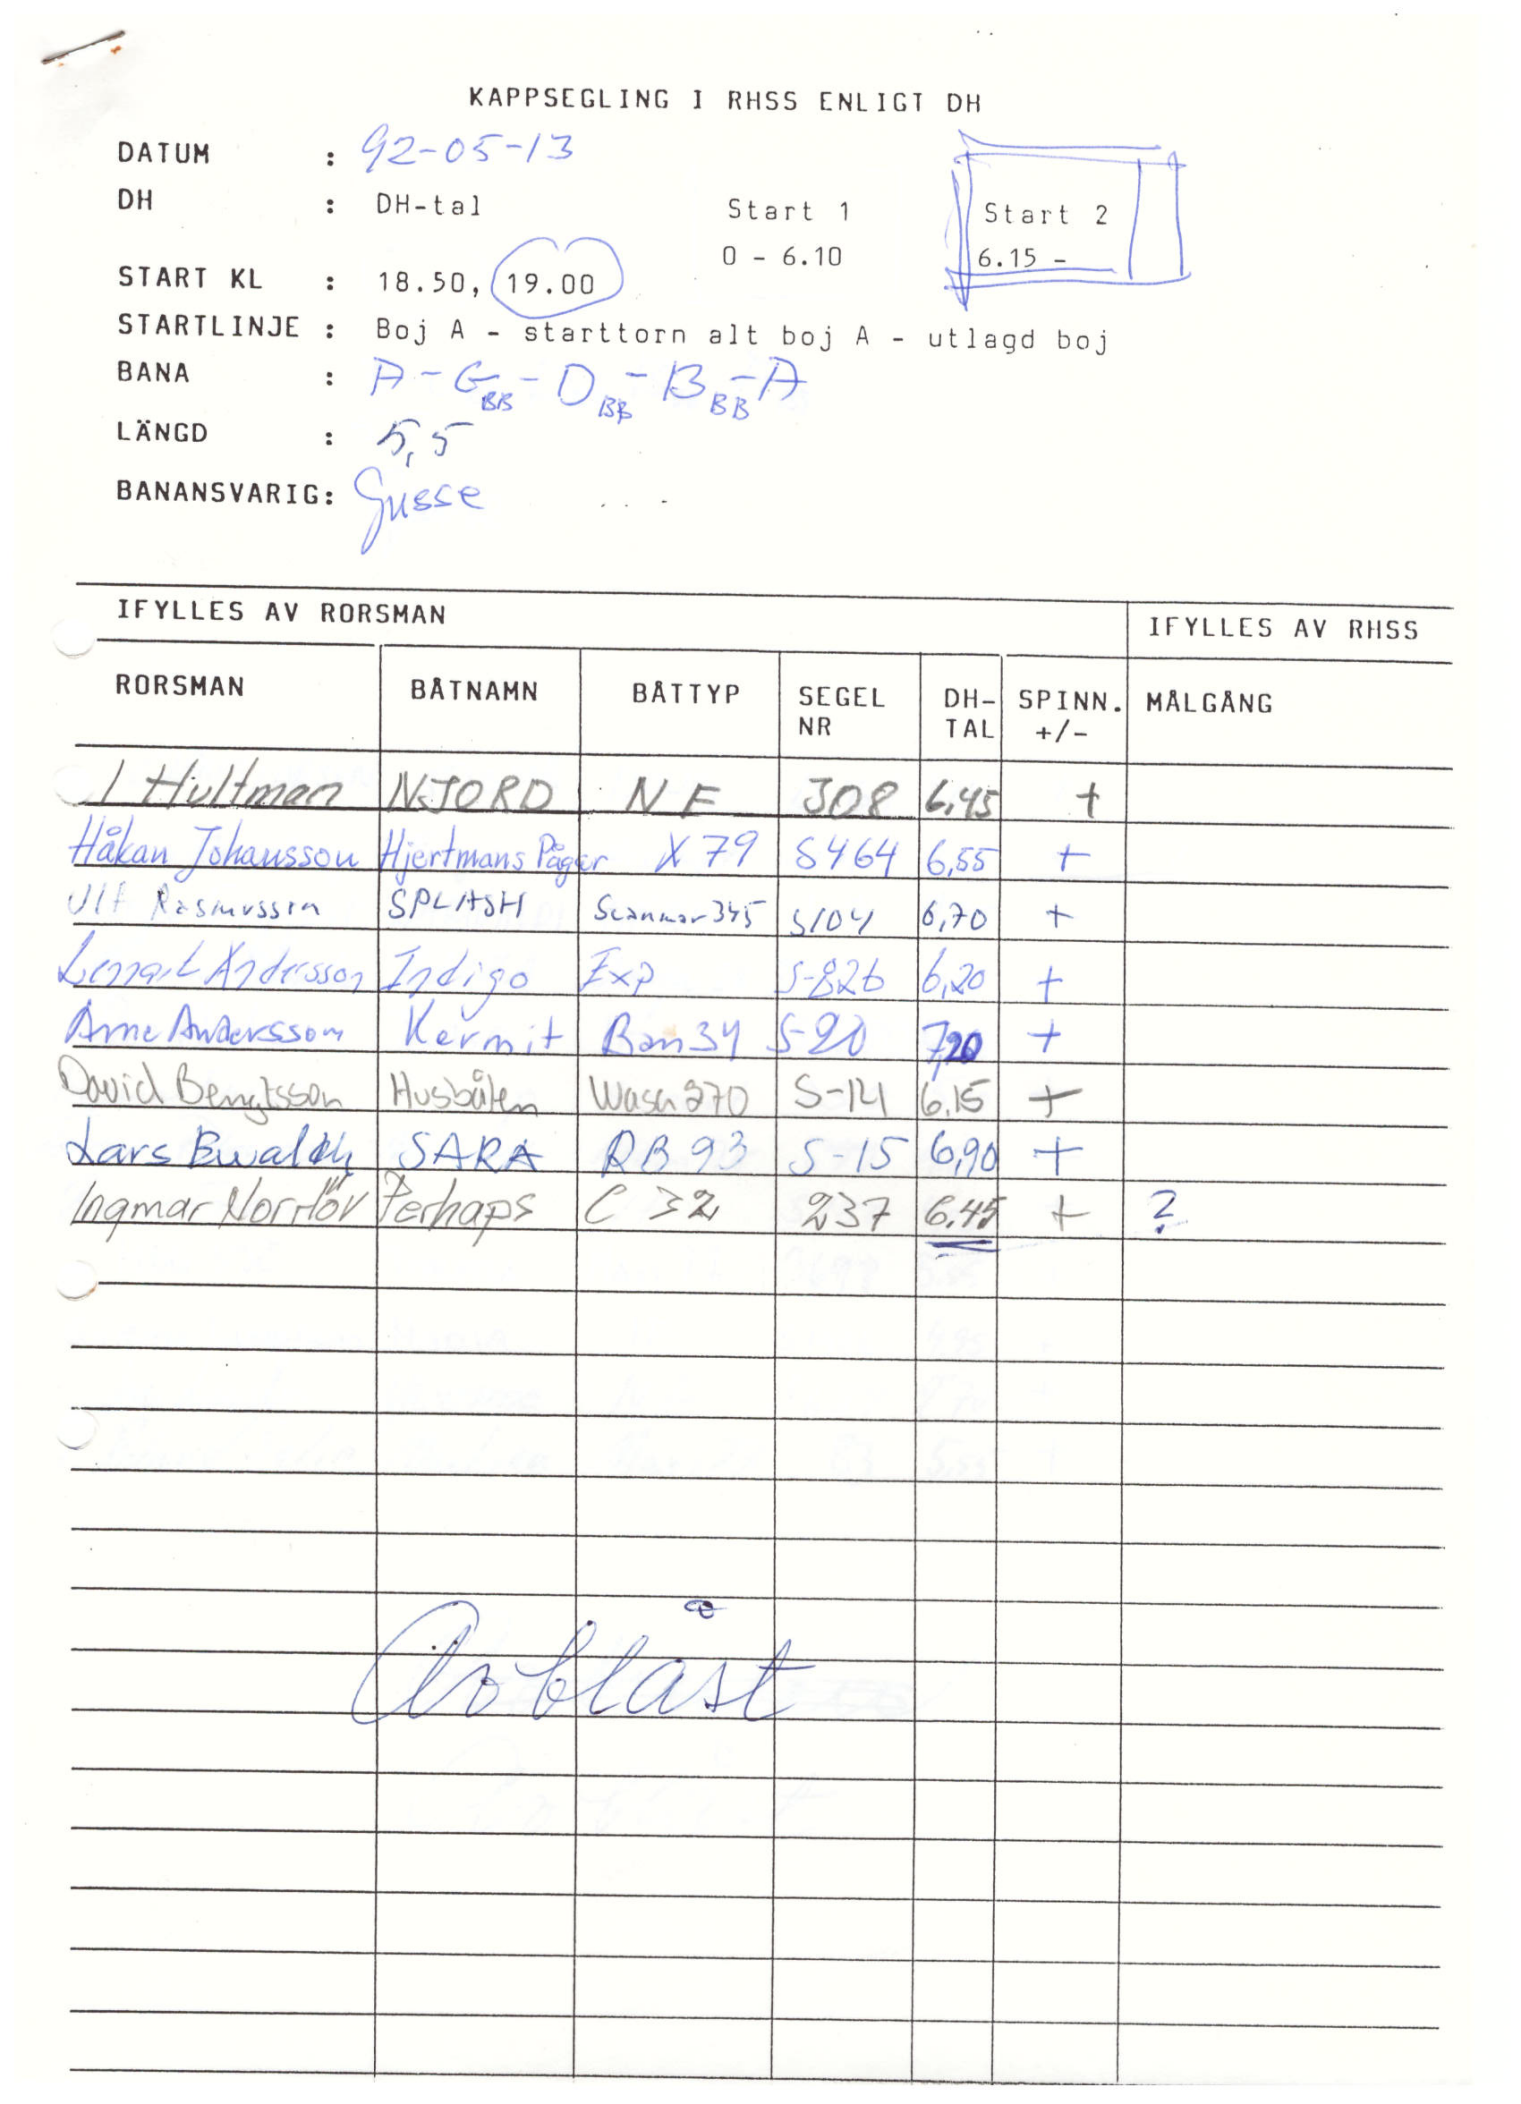 KAPPSEGLING I RHSS ENLIGT DH
DATUM : 92-05-13
DH : DH-tal Start 1 Start 2
0 - 6.10 6.15 -
START KL : 18.50, 19.00
STARTLINJE : Boj A - starttorn alt boj A - utlagd boj
BANA : A - GBB - DBB - BBB - A
LÄNGD : 5,5
BANANSVARIG: Gusse
IFYLLES AV RORSMAN IFYLLES AV RHSS
RORSMAN BÅTNAMN BÅTTYP SEGEL NR DH-TAL SPINN. +/- MÅLGÅNG
I Hultman NJORD NF 308 6,45 +
Håkan Johansson Hjertmans Påger X 79 S464 6,55 +
Ulf Rasmusson SPLASH Scanmar 345 S104 6,70 +
Lennart Andersson Indigo Exp S-826 6,20 +
Arne Andersson Kermit Ban 34 S-20 7,20 +
David Bengtsson Husbåten Wasa 370 S-141 6,15 +
Lars SARA RB 93 S-15 6,90 +
Ingmar Norrlöv Perhaps C 32 237 6.45 + ?
Avblåst